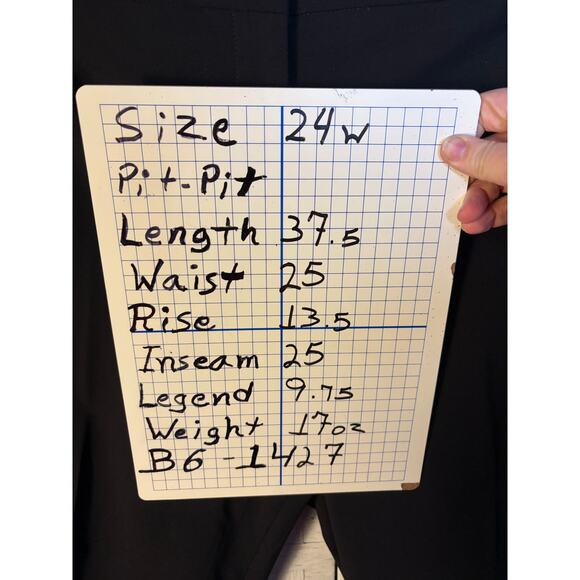 Size 24w
Pit-Pit
Length 37.5
Waist 25
Rise 13.5
Inseam 25
Legend 9.75
Weight 17oz
B6-1427